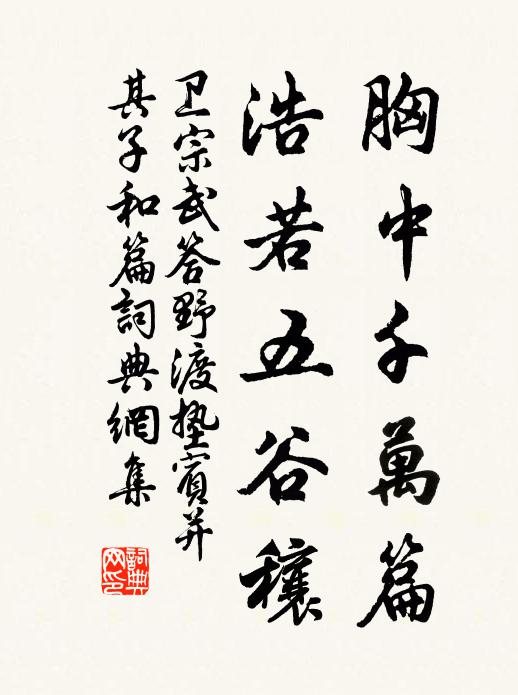 胸中千萬篇
浩若五谷穰
卫宗武答野渡垫賓并
其子和篇詞典網集
詞典网印